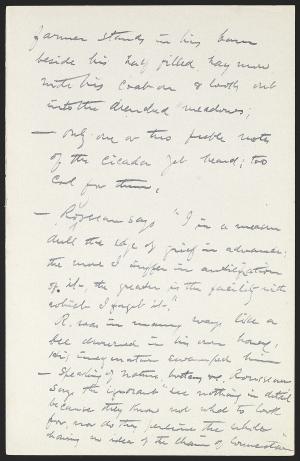 farmer stands in his barn
beside his half filled hay mow
with his coat on & looks out
into the drenched meadows;
— Only one or two feeble notes
of the Cicada yet heard; too
cool for them.
— Rousseau says "I in a measure
dull the edge of grief in advance;
the more I suffer in anticipation
of it, the greater is the facility with
which I forget it."
R. was in many ways like a
bee drowned in his own honey,
his sweamped him
— Speaking of nature, botany &c, Rousseau
says the ignorant "see nothing in detail
because they know not what to look
for, nor do they perceive the whole
having no idea of the chain of connection